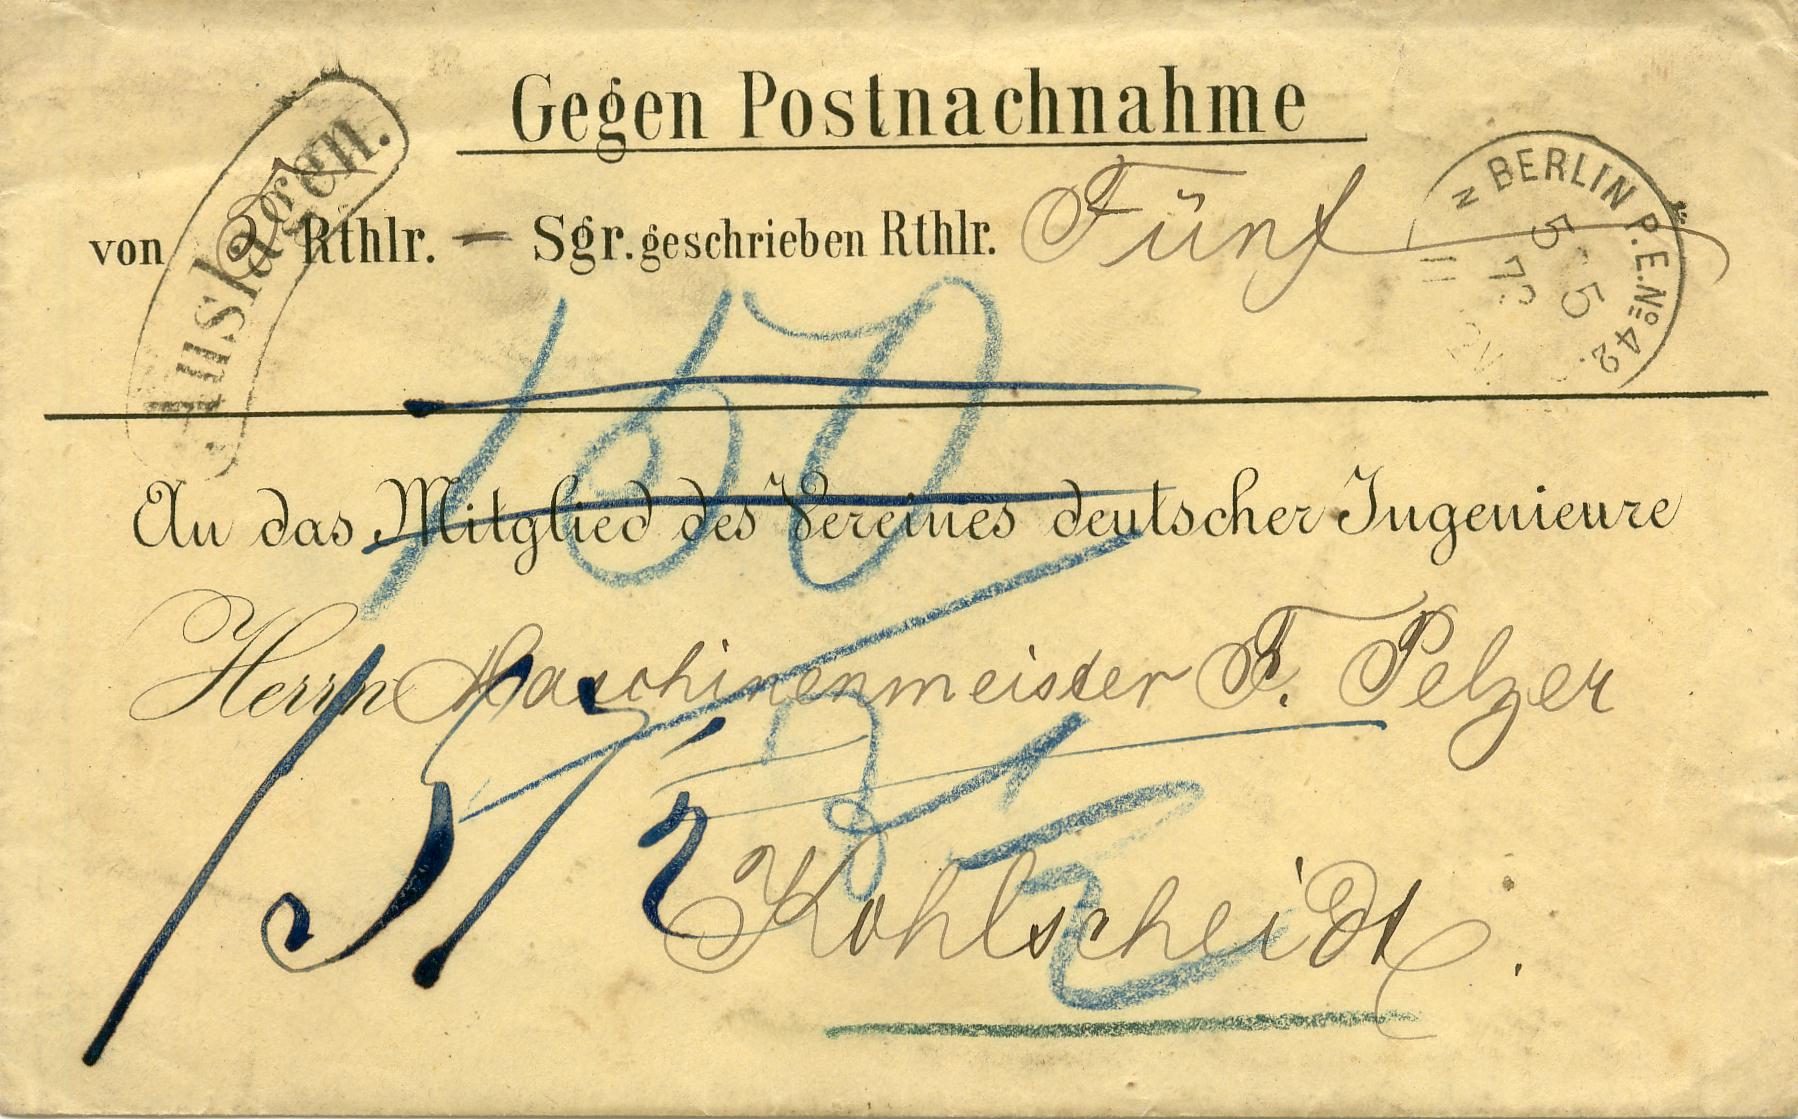 Gegen Postnachnahme
Auslagen.
von 5 Rthlr. — Sgr. geschrieben Rthlr. Fünf
BERLIN P.E. No 42.
5 5
72
11 N
150
An das Mitglied des Vereines deutscher Ingenieure
Herrn Maschinenmeister F. Pelzer
Kohlscheidt.